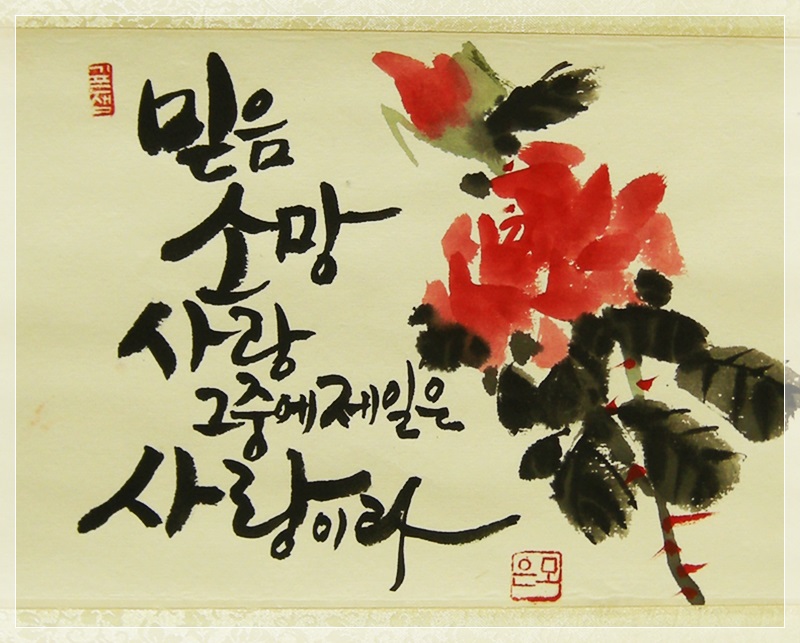 믿음
소망
사랑
그중에제일은
사랑이라
모은